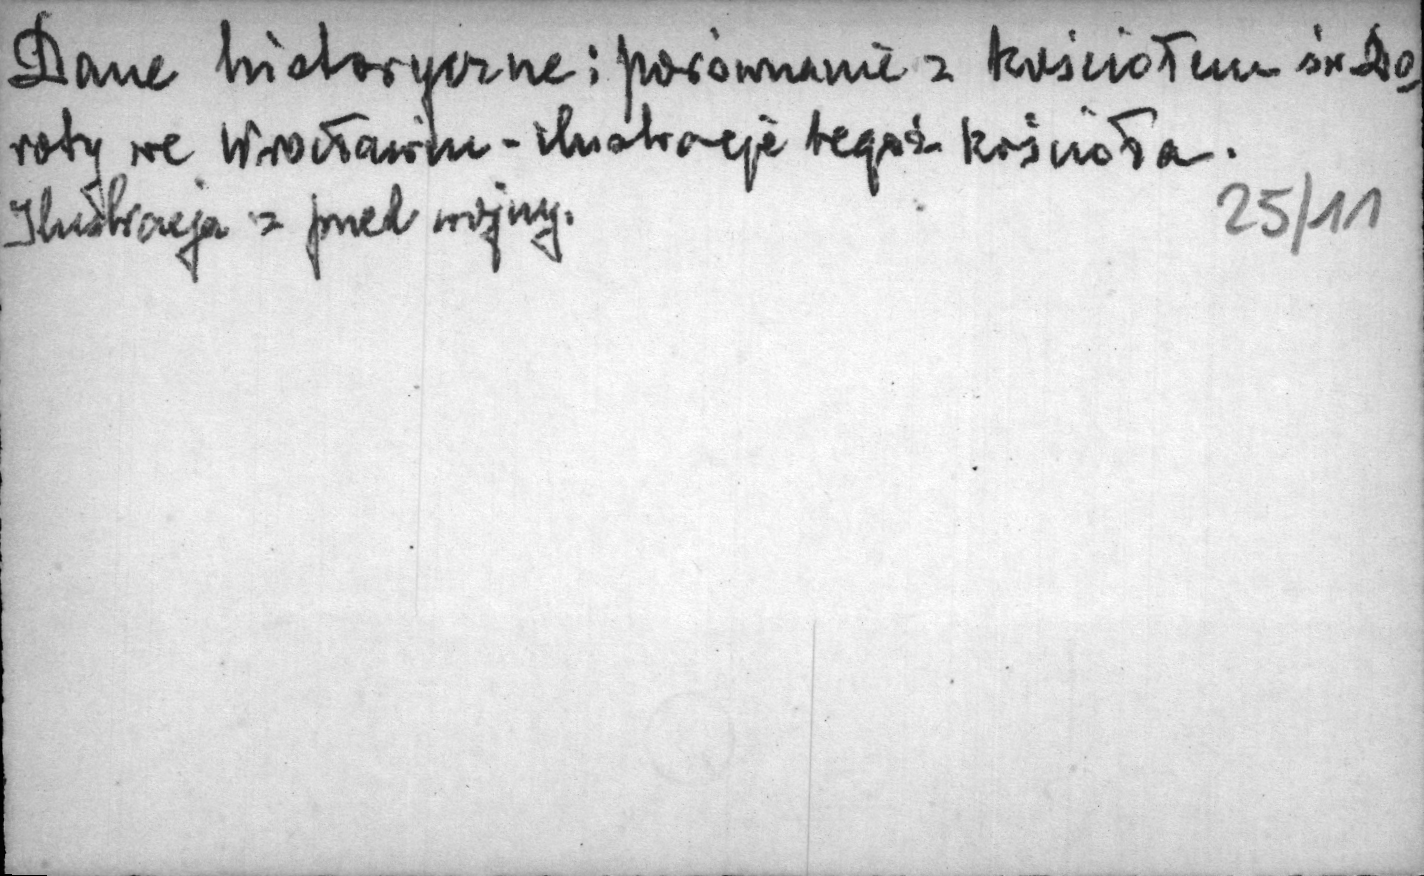 Dane historyczne i porównanie z kościołem św. Do
roty we Wrocławiu - ilustracje tegoż kościoła.
Ilustracja z przed wojny.
25/11